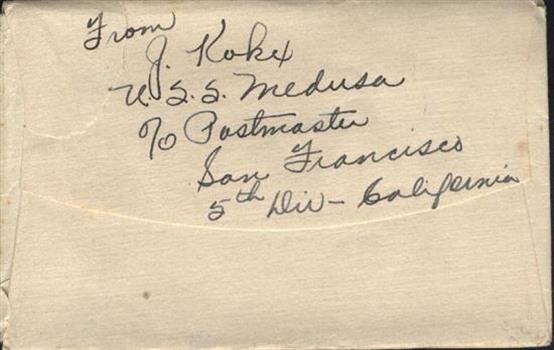 From
J. Kokx
U.S.S. Medusa
c/o Postmaster
San Francisco
5th Div - California